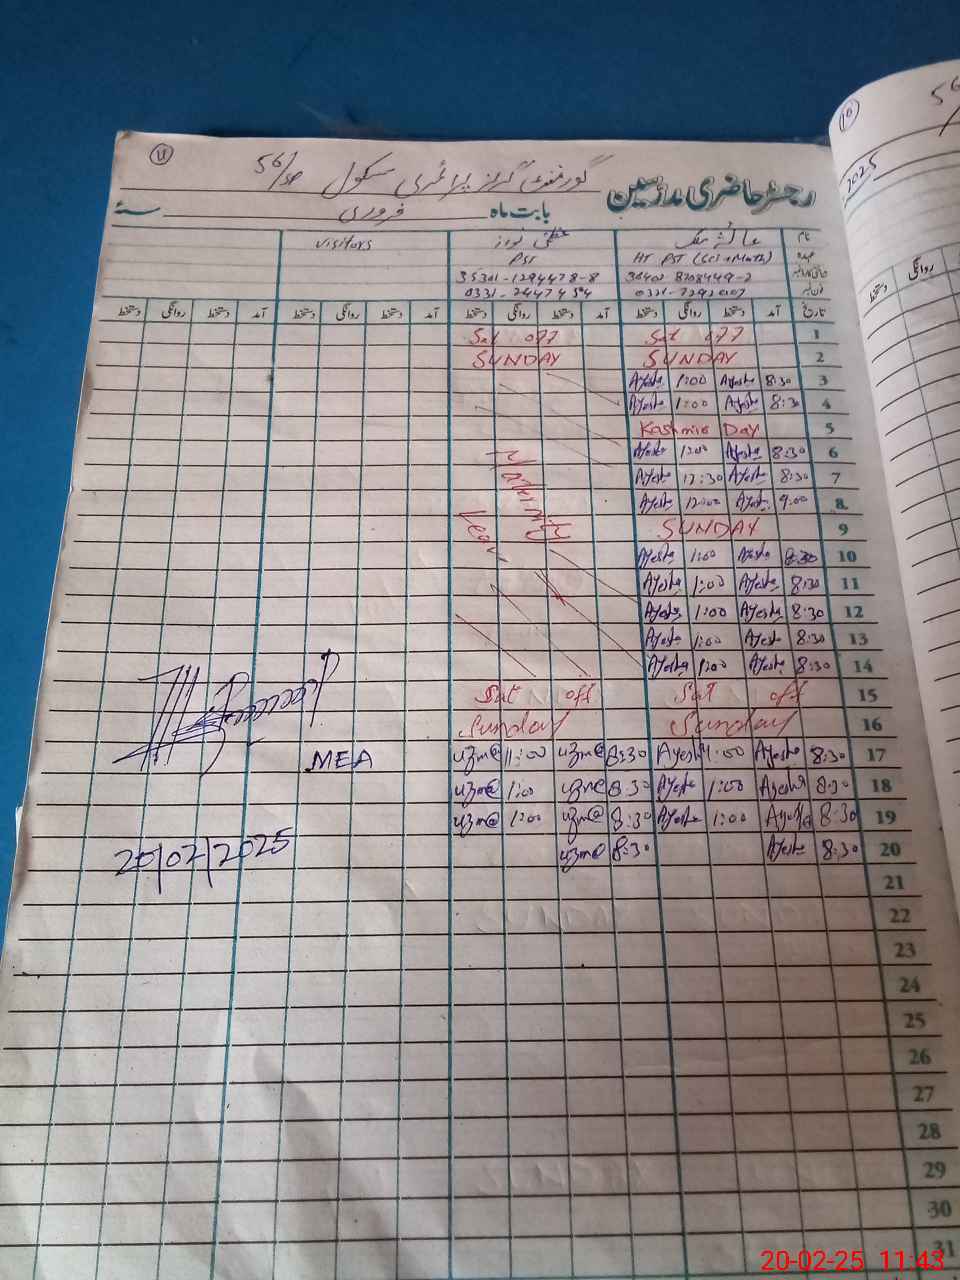 11
گورنمنٹ گرلز پرائمری سکول 56/SP
رجسٹر حاضری مدرسین
بابت ماہ فروری سنہ
نام عائشہ Visitors
عہدہ HT PST (Sci+Math) PST
35301-1294478-8
فون نمبر 0331-2447454
تاریخ آمد دستخط روانگی دستخط آمد دستخط روانگی دستخط آمد دستخط روانگی دستخط آمد دستخط روانگی دستخط
1 Sat off Sat off
2 SUNDAY SUNDAY
3 8:30 Ayesha 1:00 Ayesha
4 8:30 Ayesha 1:00 Ayesha
5 Kashmir Day
6 8:30 Ayesha 1:00 Ayesha
7 8:30 Ayesha 12:30 Ayesha
8 9:00 Ayesha 12:00 Ayesha
Maternity
9 SUNDAY
10 8:30 Ayesha 1:00 Ayesha
11 8:30 Ayesha 1:00 Ayesha
12 8:30 Ayesha 1:00 Ayesha
13 8:30 Ayesha 1:00 Ayesha
14 8:30 Ayesha 1:00 Ayesha
15 Sat off Sat off
16 Sunday Sunday
17 8:30 Ayesha 1:00 Ayesha 8:30 uzma 1:00 uzma MEA
18 8:30 Ayesha 1:00 Ayesha 8:30 uzma 1:00 uzma
19 8:30 Ayesha 1:00 Ayesha 8:30 uzma 1:00 uzma
20 8:30 Ayesha 8:30 uzma 20/02/2025
21
22
23
24
25
26
27
28
29
30
31
10
56/
2025
روانگی
دستخط
20-02-25 11:43